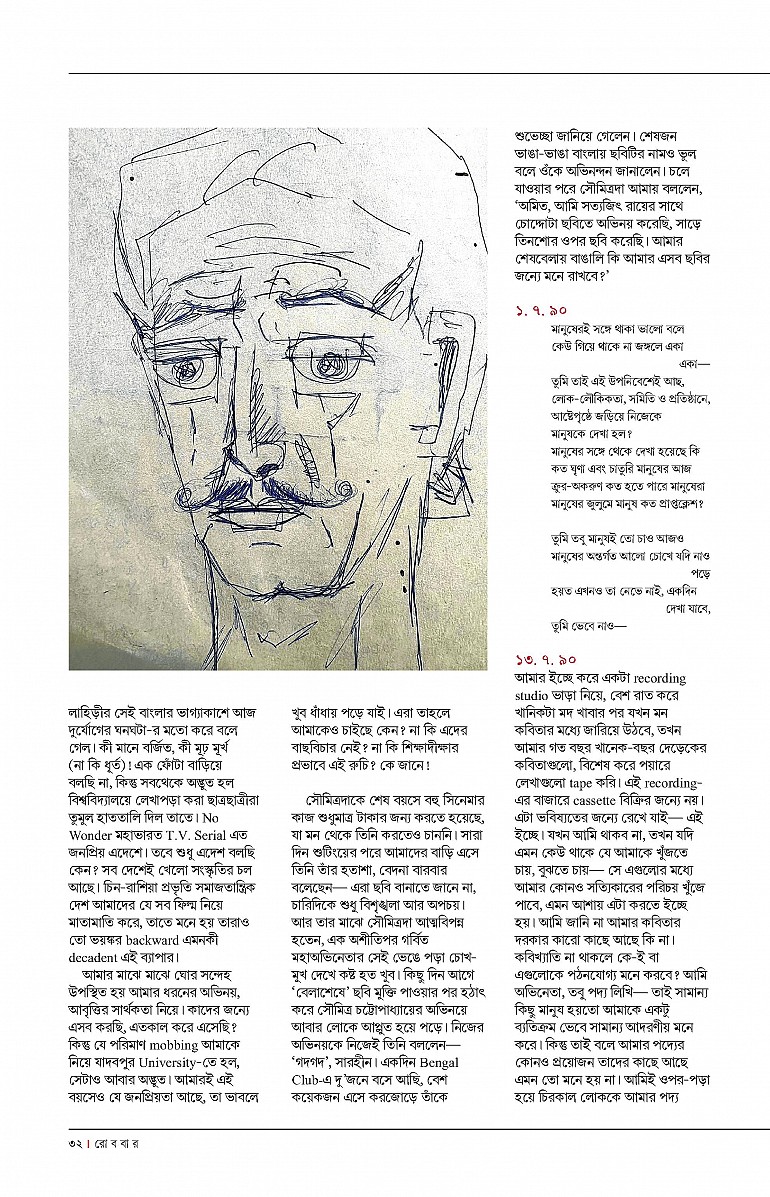 লাহিড়ীর সেই বাংলার ভাগ্যাকাশে আজ
দুর্যোগের ঘনঘটা-র মতো করে বলে
গেল। কী মানে বর্জিত, কী মূঢ় মূর্খ
(না কি ধূর্ত)! এক ফোঁটা বাড়িয়ে
বলছি না, কিন্তু সবথেকে অদ্ভুত হল
বিশ্ববিদ্যালয়ে লেখাপড়া করা ছাত্রছাত্রীরা
তুমুল হাততালি দিল তাতে। No
Wonder মহাভারত T.V. Serial এত
জনপ্রিয় এদেশে। তবে শুধু এদেশ বলছি
কেন? সব দেশেই খেলো সংস্কৃতির চল
আছে। চিন-রাশিয়া প্রভৃতি সমাজতান্ত্রিক
দেশ আমাদের যে সব ফিল্ম নিয়ে
মাতামাতি করে, তাতে মনে হয় তারাও
তো ভয়ঙ্কর backward এমনকী
decadent এই ব্যাপার।
আমার মাঝে মাঝে ঘোর সন্দেহ
উপস্থিত হয় আমার ধরনের অভিনয়,
আবৃত্তির সার্থকতা নিয়ে। কাদের জন্যে
এসব করছি, এতকাল করে এসেছি?
কিন্তু যে পরিমাণ mobbing আমাকে
নিয়ে যাদবপুর University-তে হল,
সেটাও আবার অদ্ভুত। আমারই এই
বয়সেও যে জনপ্রিয়তা আছে, তা ভাবলে
খুব ধাঁধায় পড়ে যাই। এরা তাহলে
আমাকেও চাইছে কেন? না কি এদের
বাছবিচার নেই? না কি শিক্ষাদীক্ষার
প্রভাবে এই রুচি? কে জানে!
সৌমিত্রদাকে শেষ বয়সে বহু সিনেমার
কাজ শুধুমাত্র টাকার জন্য করতে হয়েছে,
যা মন থেকে তিনি করতেও চাননি। সারা
দিন শুটিংয়ের পরে আমাদের বাড়ি এসে
তিনি তাঁর হতাশা, বেদনা বারবার
বলেছেন— এরা ছবি বানাতে জানে না,
চারিদিকে শুধু বিশৃঙ্খলা আর অপচয়।
আর তার মাঝে সৌমিত্রদা আত্মবিপন্ন
হতেন, এক অশীতিপর গর্বিত
মহাঅভিনেতার সেই ভেঙে পড়া চোখ-
মুখ দেখে কষ্ট হত খুব। কিছু দিন আগে
‘বেলাশেষে’ ছবি মুক্তি পাওয়ার পর হঠাৎ
করে সৌমিত্র চট্টোপাধ্যায়ের অভিনয়ে
আবার লোকে আপ্লুত হয়ে পড়ে। নিজের
অভিনয়কে নিজেই তিনি বললেন—
‘গদগদ’, সারহীন। একদিন Bengal
Club-এ দু’জনে বসে আছি, বেশ
কয়েকজন এসে করজোড়ে তাঁকে
শুভেচ্ছা জানিয়ে গেলেন। শেষজন
ভাঙা-ভাঙা বাংলায় ছবিটির নামও ভুল
বলে ওঁকে অভিনন্দন জানালেন। চলে
যাওয়ার পরে সৌমিত্রদা আমায় বললেন,
‘অমিত, আমি সত্যজিৎ রায়ের সাথে
চোদ্দোটা ছবিতে অভিনয় করেছি, সাড়ে
তিনশোর ওপর ছবি করেছি। আমার
শেষবেলায় বাঙালি কি আমার এসব ছবির
জন্যে মনে রাখবে?’
১. ৭. ৯০
মানুষেরই সঙ্গে থাকা ভালো বলে
কেউ গিয়ে থাকে না জঙ্গলে একা
একা—
তুমি তাই এই উপনিবেশেই আছ,
লোক-লৌকিকতা, সমিতি ও প্রতিষ্ঠানে,
আষ্টেপৃষ্ঠে জড়িয়ে নিজেকে
মানুষকে দেখা হল?
মানুষের সঙ্গে থেকে দেখা হয়েছে কি
কত ঘৃণা এবং চাতুরি মানুষের আজ
ক্রুর-অকরুণ কত হতে পারে মানুষেরা
মানুষের জুলুমে মানুষ কত প্রাপ্তক্লেশ?
তুমি তবু মানুষই তো চাও আজও
মানুষের অন্তর্গত আলো চোখে যদি নাও
পড়ে
হয়ত এখনও তা নেভে নাই, একদিন
দেখা যাবে,
তুমি ভেবে নাও—
১৩. ৭. ৯০
আমার ইচ্ছে করে একটা recording
studio ভাড়া নিয়ে, বেশ রাত করে
খানিকটা মদ খাবার পর যখন মন
কবিতার মধ্যে জারিয়ে উঠবে, তখন
আমার গত বছর খানেক-বছর দেড়েকের
কবিতাগুলো, বিশেষ করে পয়ারে
লেখাগুলো tape করি। এই recording-
এর বাজারে cassette বিক্রির জন্যে নয়।
এটা ভবিষ্যতের জন্যে রেখে যাই— এই
ইচ্ছে। যখন আমি থাকব না, তখন যদি
এমন কেউ থাকে যে আমাকে খুঁজতে
চায়, বুঝতে চায়— সে এগুলোর মধ্যে
আমার কোনও সত্যিকারের পরিচয় খুঁজে
পাবে, এমন আশায় এটা করতে ইচ্ছে
হয়। আমি জানি না আমার কবিতার
দরকার কারো কাছে আছে কি না।
কবিখ্যাতি না থাকলে কে-ই বা
এগুলোকে পঠনযোগ্য মনে করবে? আমি
অভিনেতা, তবু পদ্য লিখি— তাই সামান্য
কিছু মানুষ হয়তো আমাকে একটু
ব্যতিক্রম ভেবে সামান্য আদরণীয় মনে
করে। কিন্তু তাই বলে আমার পদ্যের
কোনও প্রয়োজন তাদের কাছে আছে
এমন তো মনে হয় না। আমিই ওপর-পড়া
হয়ে চিরকাল লোককে আমার পদ্য
৩২ । রো ব বা র